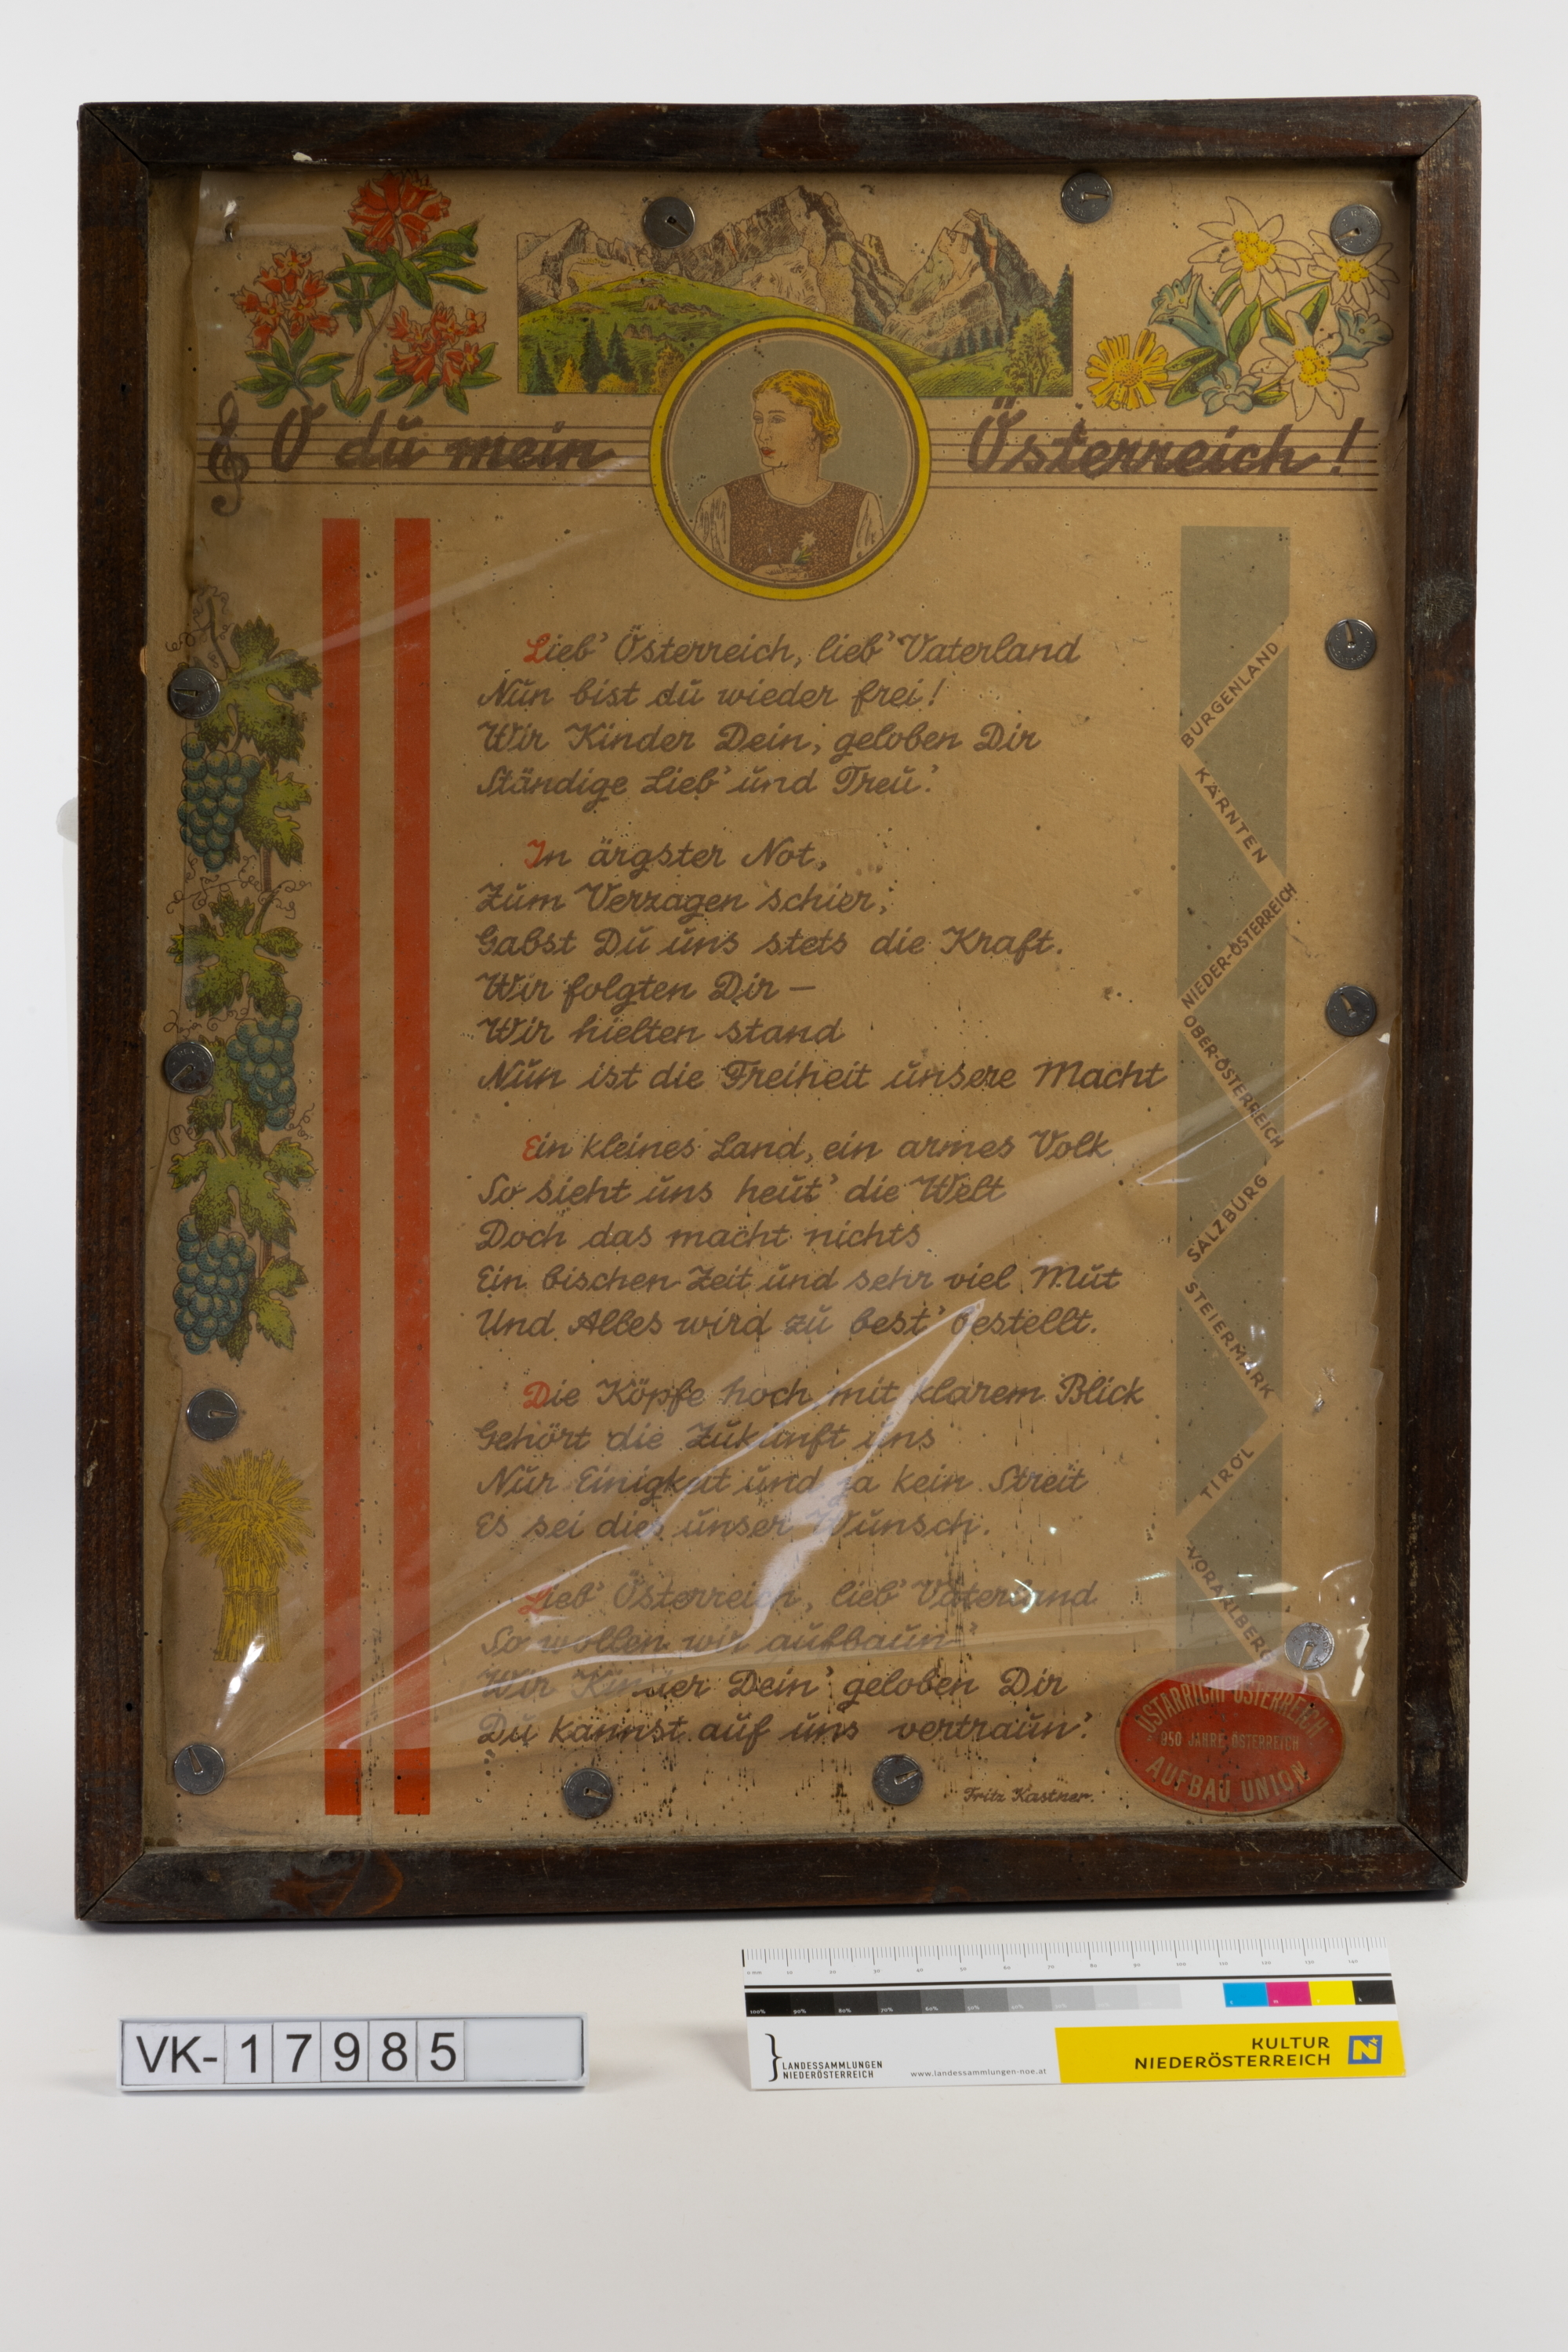 O du mein Österreich!
Lieb' Österreich, lieb' Vaterland
Nun bist du wieder frei!
Wir Kinder Dein, geloben Dir
Ständige Lieb' und Treu'.
In ärgster Not,
Zum Verzagen schier,
Gabst Du uns stets die Kraft.
Wir folgten Dir —
Wir hielten stand
Nun ist die Freiheit unsere Macht
Ein kleines Land, ein armes Volk
So sieht uns heut' die Welt
Doch das macht nichts
Ein bischen Zeit und sehr viel Mut
Und Alles wird zu best' bestellt.
Die Köpfe hoch, mit klarem Blick
Gehört die Zukunft uns
Nur Einigkeit und ja kein Streit
Es sei dies unser Wunsch.
Lieb' Österreich, lieb' Vaterland
So wollen wir aufbaun'
Wir Kinder Dein' geloben Dir
Du kannst auf uns vertraun'.
Fritz Kastner.
BURGENLAND
KÄRNTEN
NIEDER-ÖSTERREICH
OBER-ÖSTERREICH
SALZBURG
STEIERMARK
TIROL
VORARLBERG
OSTARRICHI ÖSTERREICH
950 JAHRE ÖSTERREICH
AUFBAU UNION
VK-17985
LANDESSAMMLUNGEN
NIEDERÖSTERREICH
www.landessammlungen-noe.at
KULTUR
NIEDERÖSTERREICH